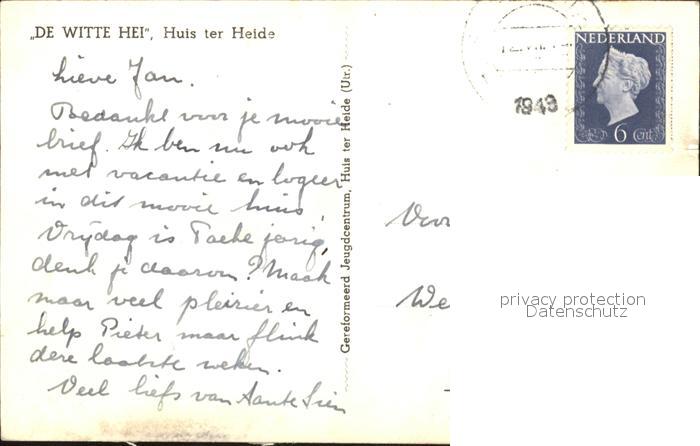 „DE WITTE HEI", Huis ter Heide
Lieve Jan.
Bedankt voor je mooie
brief. Ik ben nu ook
met vacantie en logeer
in dit mooie huis.
Vrijdag is Taeke jarig,
denk je daarom? Maak
maar veel pleizier en
help Pieter maar flink
deze laatste weken.
Veel liefs van Tante Sien
Gereformeerd Jeugdcentrum, Huis ter Heide (Utr.)
1949
NEDERLAND
6 Cent
Voor
We
privacy protection
Datenschutz